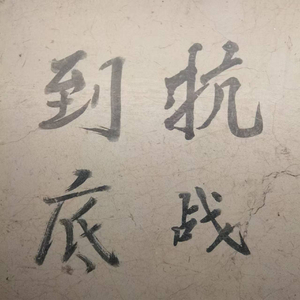 抗战
到底